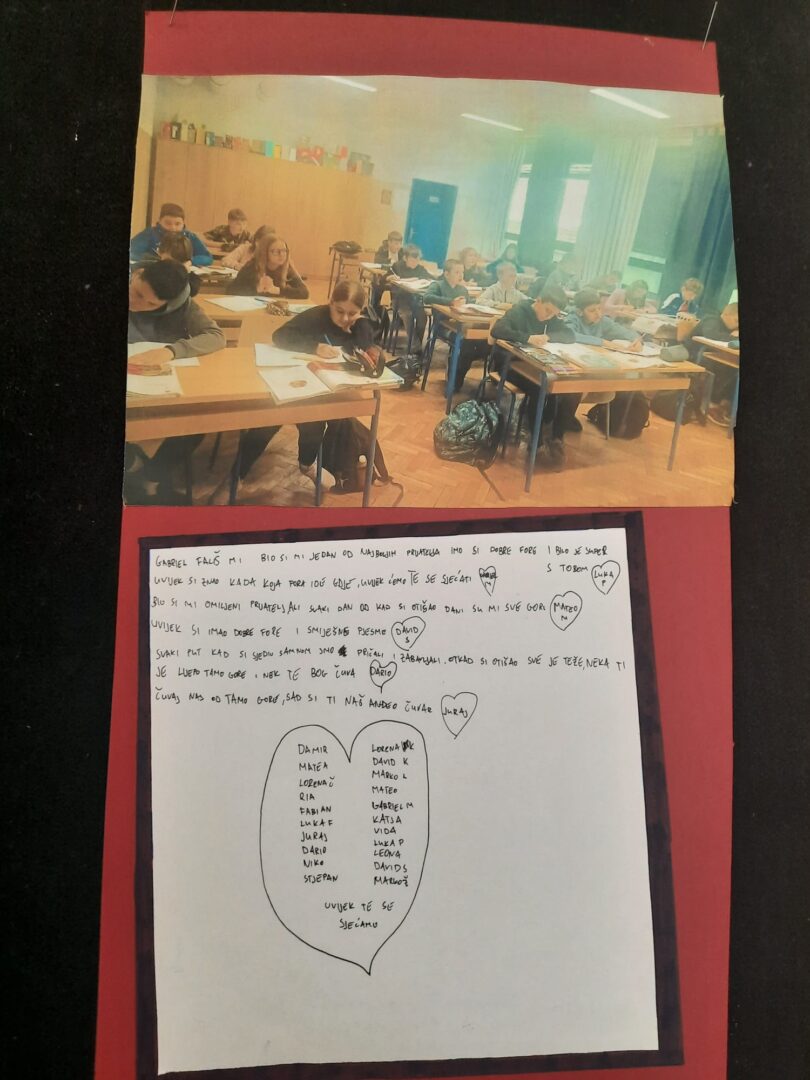 GABRIEL FALIŠ MI BIO SI MI JEDAN OD NAJBOLJIH PRIJATELJA IMO SI DOBRE FORE I BILO JE SUPER S TOBOM LUKA P
UVIJEK SI ZNAO KADA KOJA FORA IDE GDJE, UVIJEK ĆEMO TE SE SJEĆATI M
BIO SI MI OMILJENI PRIJATELJ ALI SVAKI DAN OD KAD SI OTIŠAO DANI SU MI SVE GORI MATEO M
UVIJEK SI IMAO DOBRE FORE I SMIJEŠNE PJESME DAVID S
SVAKI PUT KAD SI SJEDIO SAMNOM SMO PRIČALI I ZABAVLJALI. OTKAD SI OTIŠAO SVE JE TEŽE, NEKA TI
JE LIJEPO TAMO GORE I NEK TE BOG ČUVA DARIO
ČUVAJ NAS OD TAMO GORE, SAD SI TI NAŠ ANĐEO ČUVAR JURAJ
DAMIR
MATEA
LORENA Č
RIA
FABIAN
LUKA F
JURAJ
DARIO
NIKO
STJEPAN
LORENA K
DAVID K
MARKO L
MATEO
GABRIEL M
KATJA
VIDA
LUKA P
LEONA
DAVID S
MARKO Š
UVIJEK TE SE
SJEĆAMO